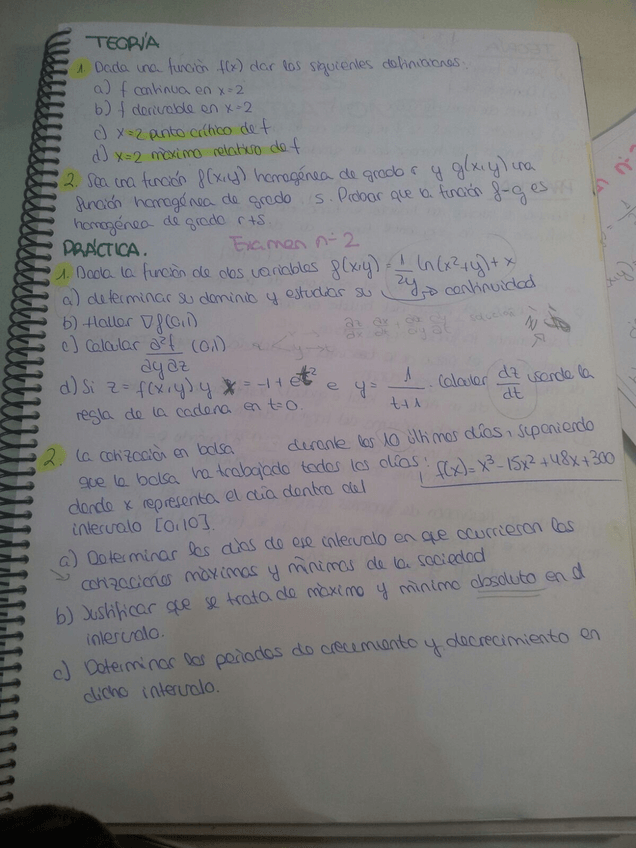 TEORÍA
1. Dada una función f(x) dar las siguientes definiciones:
a) f continua en x=2
b) f derivable en x=2
c) x=2 punto crítico de f
d) x=2 màximo relativo de f
2. Sea una función f(x,y) homogénea de grado r y g(x,y) una
función homogénea de grado s. Probar que la función f-g es
homogénea de grado r+s.
PRÁCTICA. Examen nº 2
1. Dada la función de dos variables f(x,y) = 1/2y ln(x²+y) + x
a) determinar su dominio y estudiar su continuidad
b) Hallar ∇f(0,1)
c) Calcular ∂²f/∂y∂z (0,1)
d) Si z = f(x,y) y x = -1 + e^t² e y = 1/t+1. Calcular dz/dt usando la
regla de la cadena en t=0.
2. La cotización en bolsa durante los 10 últimos días, suponiendo
que la bolsa ha trabajado todos los días: f(x) = x³-15x²+48x+300
donde x representa el día dentro del
intervalo [0,10].
a) Determinar los días de ese intervalo en que ocurrieron las
cotizaciones màximas y mìnimas de la sociedad
b) Justificar que se trata de màximo y mìnimo absoluto en el
intervalo.
c) Determinar los periodos de crecimiento y decrecimiento en
dicho intervalo.